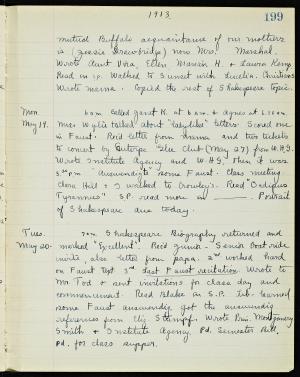 1913
199
mutual Buffalo acquaintance of our mothers
is (Jessie Trowbridge) now Mrs. Marshal.
Wrote Aunt Vira, Ellen Marvin H. & Laura Kemp
Read in S.P. Walked to Sunset with Lucile. Christians
Wrote mama. Copied the rest of Shakespeare topic.
Mon.
May 19.
6 a.m. called Janet K. at 6 a.m. & Agnes at 6.20 a.m.
Miss Wylie talked about "ladylike" letters. Sewed one
in Faust. Rec'd letter from Mama and two tickets
to concert by Euterpe Glee Club (May 27) from W.H.S.
Wrote Institute Agency and W.H.S. Then it was
some Faust. Class meeting
Clara Hill & I walked to Crowley's. Read "Oedipus
Tyrannus" S.P. read more in
of Shakespeare due today.
Tues.
May 20.
7 a.m. Shakespeare Biography returned and
marked "Excellent". Rec'd Junior - Senior boat ride
invite, also letter from papa. 2nd worked hard
on Faust Dept 3rd last Faust recitation. Wrote to
Mr Tod & sent invitations for class day and
commencement. Read Blake in S.P. lib. learned
some Faust
references from Eliz Stumpf. Wrote Mrs. Montgomery
Smith & Institute Agency. Pd. Semester Bill,
Pd. for class supper.